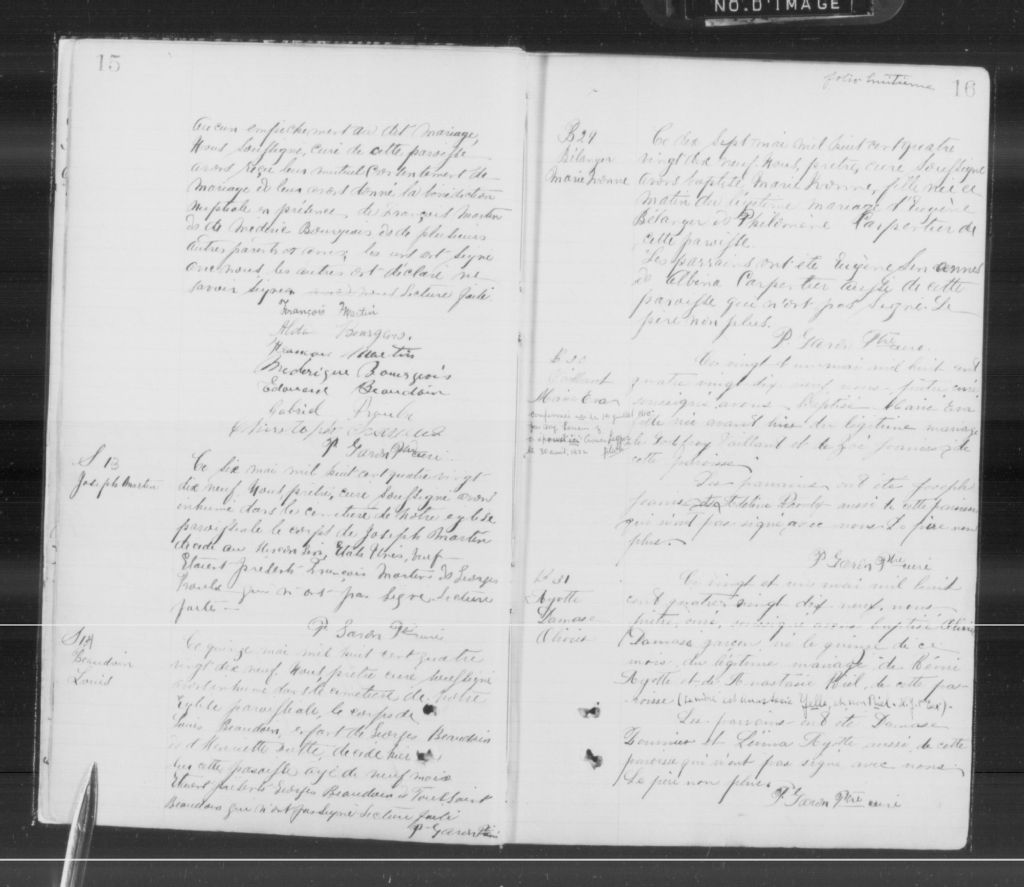 NO. D'IMAGE
15
aucun empêchement au dit mariage,
Nous Soussigné, curé de cette paroisse
avons reçu leur mutuel consentement de
mariage et leur avons donné la bénédiction
nuptiale en présence de François Martin
et de Médéric Bourgeois et de plusieurs
autres parents et amis, les uns ont signé
avec nous, les autres ont déclaré ne
savoir signer Lecture faite
François Martin
Alda Bourgeois
Martin
Frederique Bourgeois
Edouard Beaudoin
Gabriel
P. Garon Ptre curé
S 13
Joseph Martin
Ce six mai mil huit cent quatre vingt
dix neuf Nous prêtre, curé soussigné avons
inhumé dans le cimetière de notre église
paroissiale le corps de Joseph Martin
décédé au Etats Unis,
Etaient présents François Martin et Georges
qui n'ont pas signé Lecture
faite
P. Garon Ptre curé
S 14
Beaudoin
Louis
Ce quinze mai mil huit cent quatre
vingt dix neuf Nous prêtre curé soussigné
avons inhumé dans le cimetière de notre
Eglise paroissiale, le corps de
Louis Beaudoin, enfant de Georges Beaudoin
et d'Henriette décédé hier
en cette paroisse âgé de neuf mois
Etaient présents Georges Beaudoin et Toussaint
Beaudoin qui n'ont pas signé Lecture faite
P. Garon Ptre
folio huitième
16
B 29
Bélanger
Marie Ivonne
Ce dix Sept mai mil huit cent quatre
vingt dix neuf Nous, prêtre, curé Soussigné
avons baptisé, Marie Ivonne, fille née ce
matin du légitime mariage d'Eugène
Bélanger et Philomène Carpentier de
cette paroisse.
Les parrains ont été Eugène
et Albina Carpentier aussi de cette
paroisse qui n'ont pas signé. Le
père non plus.
P. Garon Ptre curé.
Vaillant
Marie Eva
Ce vingt et un mai mil huit cent
quatre vingt dix neuf nous prêtre curé
soussigné avons baptisé Marie Eva
fille née avant hier du légitime mariage
de Vaillant et de de
cette paroisse
Les parrains ont été Joseph
et aussi de cette paroisse
qui n'ont pas signé avec nous. Le père non
plus.
P Garon Ptre curé
B 31
Ayotte
Damase
Olivier
Ce vingt et un mai mil huit
cent quatre vingt dix neuf, nous
prêtre, curé, soussigné avons baptisé Olivier
Damase garçon, né le quinze de ce
mois du légitime mariage de Rémi
Ayotte et de Anastasie Riel, de cette pa-
roisse
Les parrains ont été Damase
et Ayotte aussi de cette
paroisse qui n'ont pas signé avec nous.
Le père non plus.
P Garon Ptre curé